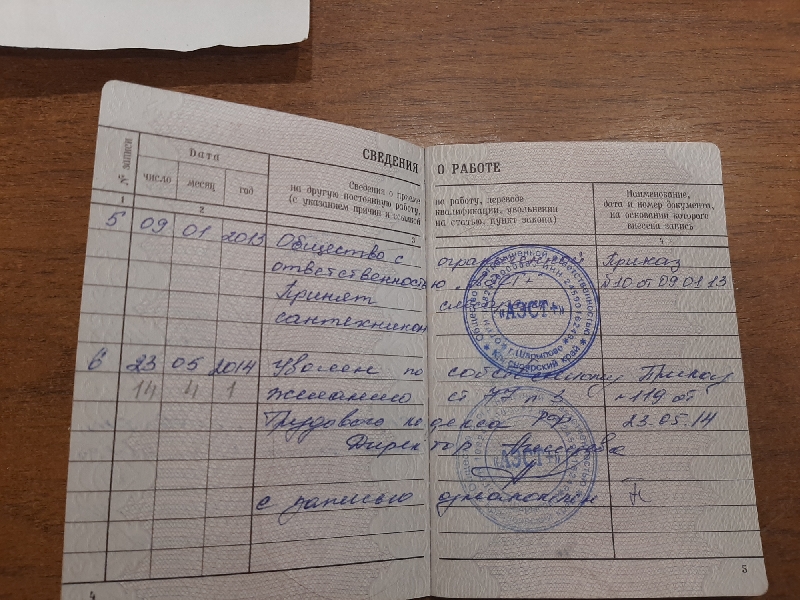 СВЕДЕНИЯ О РАБОТЕ
№ записи
Дата
число месяц год
Сведения о приеме
на другую постоянную работу,
(с указанием причин и
на работу, переводе
квалификации, увольнении
на статью, пункт закона)
Наименование,
дата и номер документа,
на основании которого
внесена запись
2 3 4
5 09 01 2013 Общество с ограниченной Приказ
ответственностью №10 от 09.01.13
Принят
сантехником
6 23 05 2014 Уволен по собственному Приказ
14 4 1 желанию ст 77 п 3 119 от
Трудового кодекса РФ 23.05.14
Директор
с записью ознакомлен
«АЭСТ+»
г.Шарыпово
Красноярский край
«АЭСТ+»
4
5